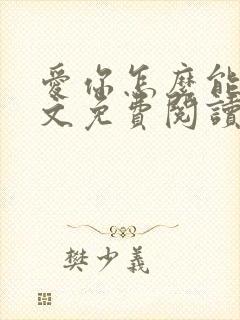 愛你怎麼能
文免費閱讀
樊少義